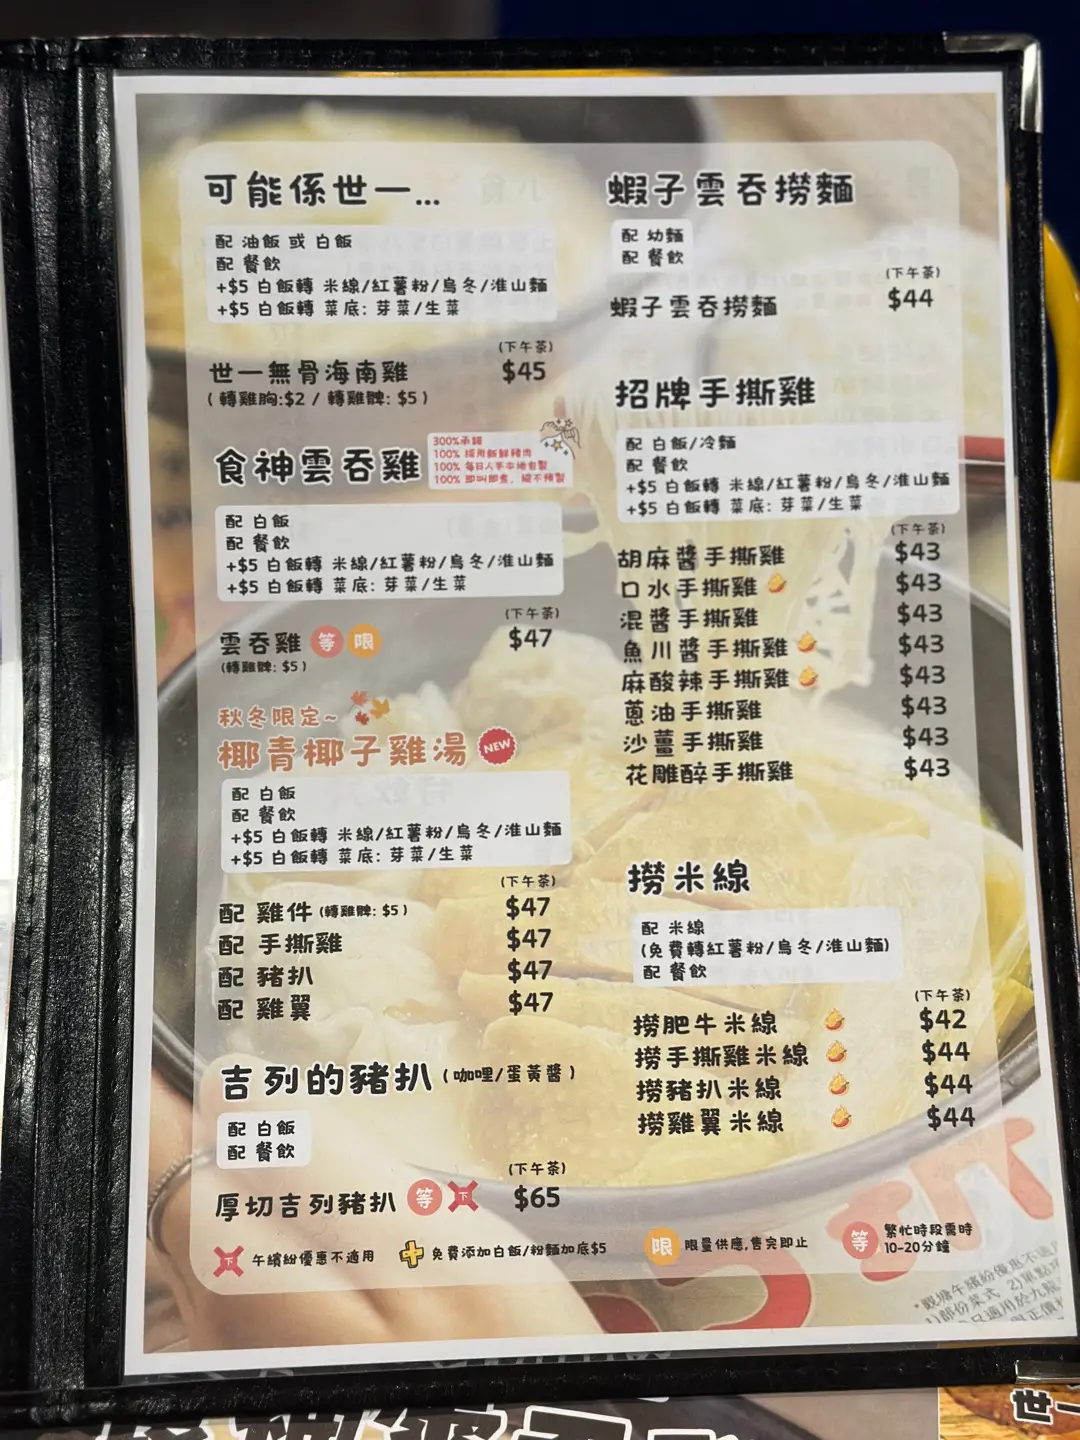 可能係世一...
配 油飯 或 白飯
配 餐飲
+$5 白飯轉 米線/紅薯粉/烏冬/淮山麵
+$5 白飯轉 菜底: 芽菜/生菜
(下午茶)
世一無骨海南雞 $45
(轉雞胸:$2 / 轉雞髀: $5)
食神雲吞雞
300%承諾
100% 採用新鮮豬肉
100% 每日人手本地包製
100% 即叫即煮，絕不預製
配 白飯
配 餐飲
+$5 白飯轉 米線/紅薯粉/烏冬/淮山麵
+$5 白飯轉 菜底: 芽菜/生菜
(下午茶)
雲吞雞 等 限 $47
(轉雞髀: $5)
秋冬限定~
椰青椰子雞湯 NEW
配 白飯
配 餐飲
+$5 白飯轉 米線/紅薯粉/烏冬/淮山麵
+$5 白飯轉 菜底: 芽菜/生菜
(下午茶)
配 雞件 (轉雞髀: $5) $47
配 手撕雞 $47
配 豬扒 $47
配 雞翼 $47
吉列的豬扒 (咖哩/蛋黃醬)
配 白飯
配 餐飲
(下午茶)
厚切吉列豬扒 等 下 $65
蝦子雲吞撈麵
配 幼麵
配 餐飲
(下午茶)
蝦子雲吞撈麵 $44
招牌手撕雞
配 白飯/冷麵
配 餐飲
+$5 白飯轉 米線/紅薯粉/烏冬/淮山麵
+$5 白飯轉 菜底: 芽菜/生菜
(下午茶)
胡麻醬手撕雞 $43
口水手撕雞 $43
混醬手撕雞 $43
魚川醬手撕雞 $43
麻酸辣手撕雞 $43
蔥油手撕雞 $43
沙薑手撕雞 $43
花雕醉手撕雞 $43
撈米線
配 米線
(免費轉紅薯粉/烏冬/淮山麵)
配 餐飲
(下午茶)
撈肥牛米線 $42
撈手撕雞米線 $44
撈豬扒米線 $44
撈雞翼米線 $44
下 午繽紛優惠不適用
免費添加白飯/粉麵加底$5
限 限量供應,售完即止
等 繁忙時段需時
10-20分鐘
*觀塘午繽紛優惠不適
1)部份菜式 2)單點
適用於九龍
世一